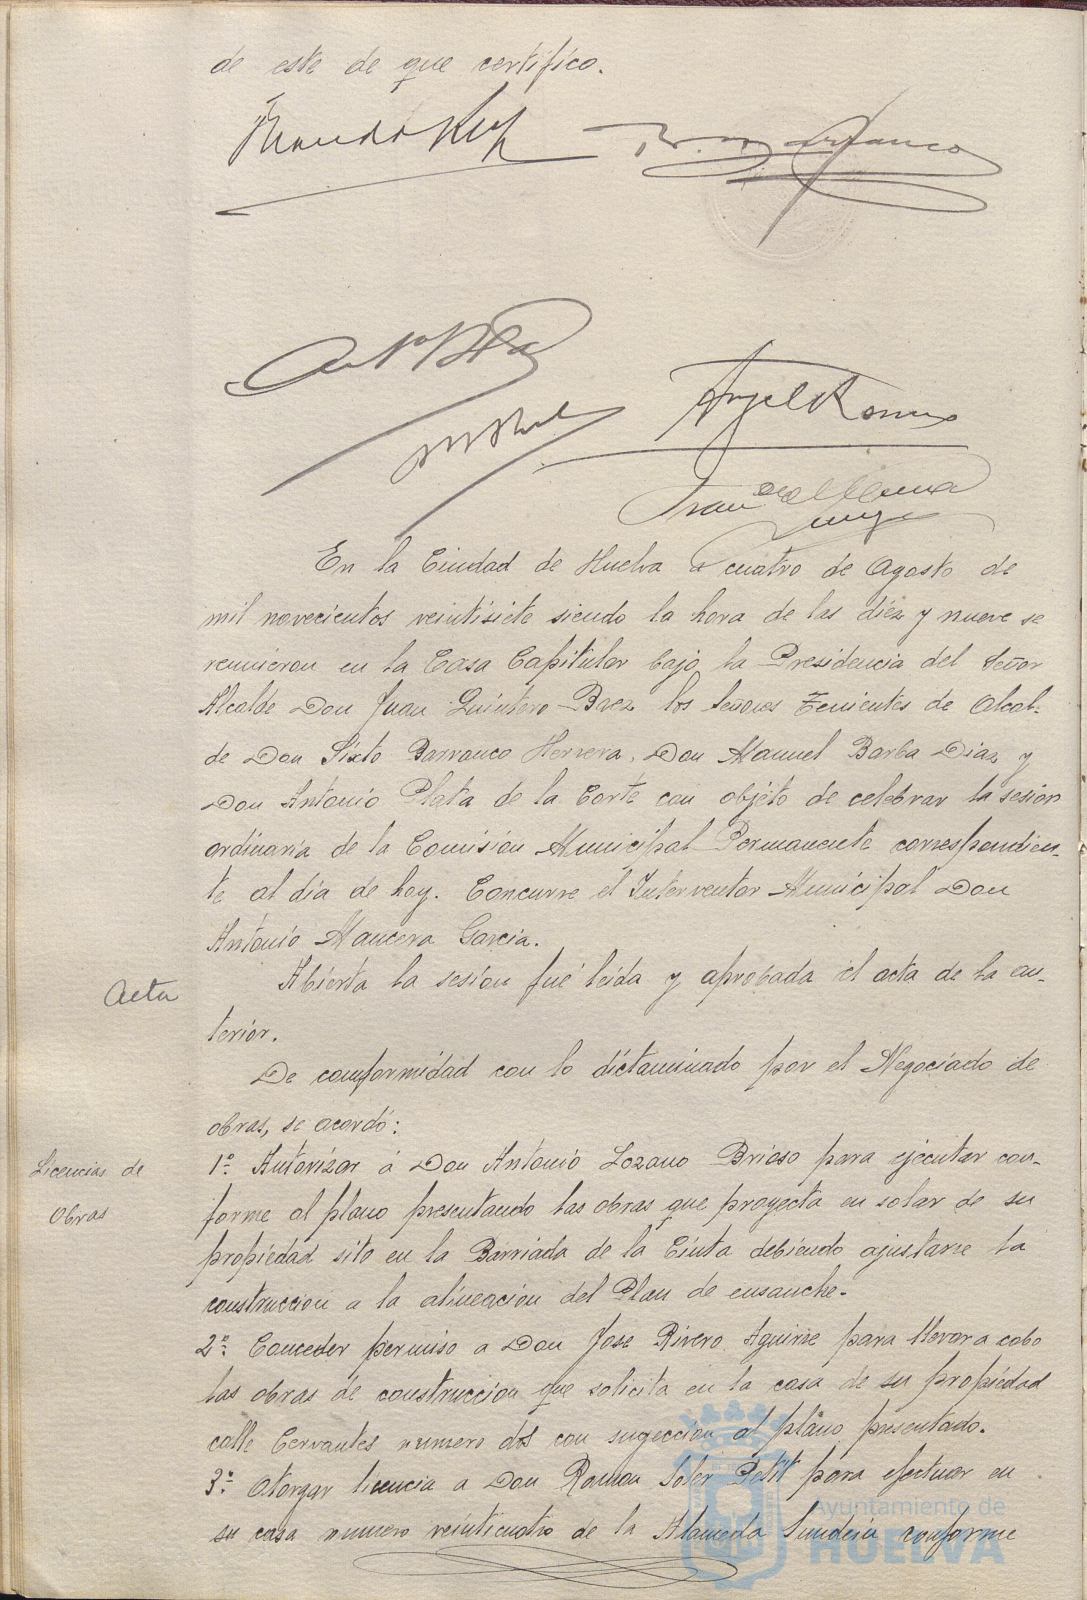 de este de que certifico.
Angel Romero
En la Ciudad de Huelva a cuatro de Agosto de
mil novecientos veintisiete siendo la hora de las diez y nueve se
reunieron en la Casa Capitular bajo la Presidencia del Señor
Alcalde Don Juan Quintero Baez los Señores Tenientes de Alcal-
de Don Sixto Barranco Herrera, Don Manuel Barba Diaz y
Don Antonio Plata de la Corte con objeto de celebrar la sesion
ordinaria de la Comisión Municipal Permanente correspondien-
te al dia de hoy. Concurre el Interventor Municipal Don
Antonio Mancera Garcia.
Acta
Abierta la sesion fué leida y aprobada el acta de la an-
terior.
De conformidad con lo dictaminado por el Negociado de
obras, se acordó:
Licencias de
Obras
1º Autorizar á Don Antonio Lozano Brioso para ejecutar con-
forme al plano presentando las obras que proyecta en solar de su
propiedad sito en la Barriada de la Cinta debiendo ajustarse la
construccion a la alineación del Plan de ensanche.
2º Conceder permiso a Don Jose Rivero Aguirre para llevar a cabo
las obras de construccion que solicita en la casa de su propiedad
calle Cervantes numero dos con sugeccion al plano presentado.
3º Otorgar licencia a Don Ramon Soler Petit para efectuar en
su casa numero veinticuatro de la Alameda Sundein conforme
Ayuntamiento de
HUELVA